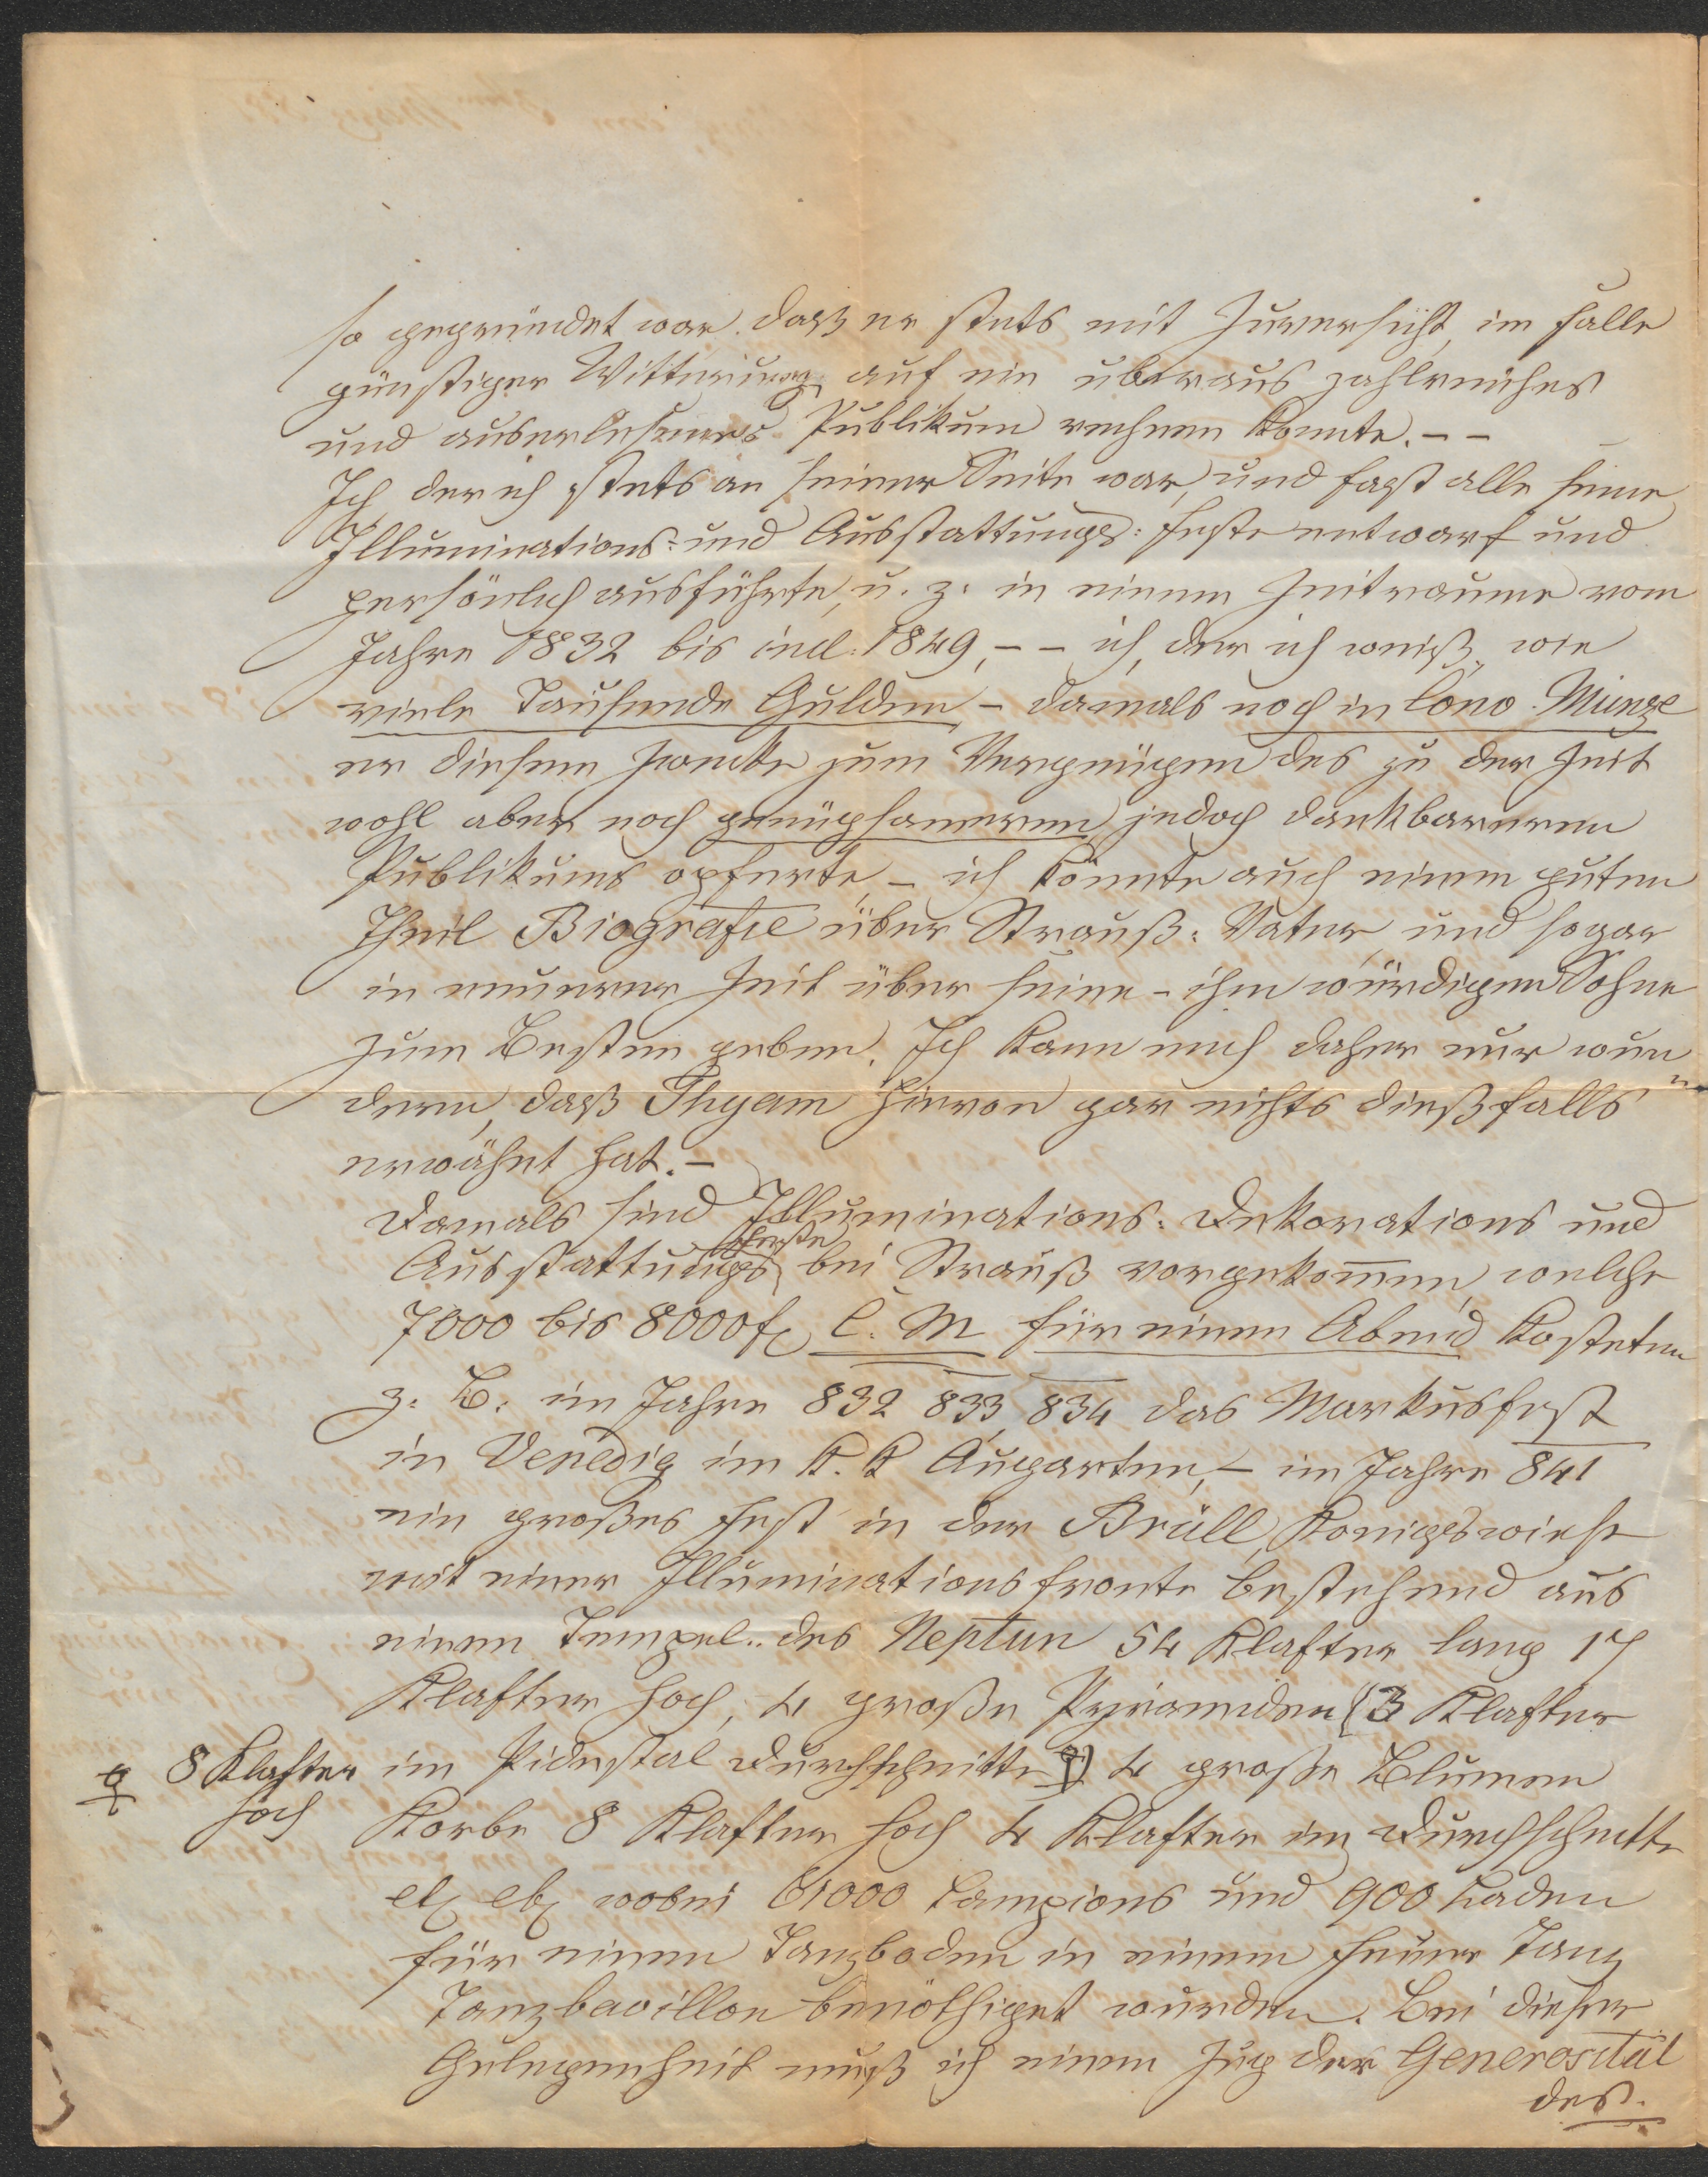 so gegründet war, daß er stets mit Zuversicht, im Falle
günstiger Witterung auf ein überaus zahlreiches
und auserlesenes Publikum rechnen konnte. – –
Ich, der ich stets an seiner Seite war, und fast alle seine
Illuminations- und Ausstattungs: Feste entwarf und
persönlich ausführte, u. z. in einem Zeitraume vom
Jahre 1832 bis incl: 1849, – – ich, der ich weiß, wie
viele Tausende Gulden – damals noch in Cono. Münze
er diesem Zwecke zum Vergnügen des zu der Zeit
wohl aber noch genügsameren, jedoch dankbareren
Publikums opferte, – ich könnte auch einen guten
Theil Biografie über Strauß: Vater, und sogar
in neuerer Zeit über seine – ihm würdigen Sohne
zum Besten geben. Ich kann mich daher nur wun„
dern, daß Thyam hievon gar nichts dießfalls
erwähnt hat. –
Damals sind Illuminations: Dekorations und
Ausstattungs feste bei Strauß vorgekommen, welche
7000 bis 8000 f C. M für einen Abend kosteten
z. B. im Jahre 832 833, 834 das Markusfest
in Venedig im K. K Augarten, – im Jahre 841
ein großes Fest in der Brüll, Königswiese
mit einer Illuminationsfronte bestehend aus
einem Tempel.. des Neptun 54 Klafter lang 17
Klafter hoch, 4 große Pyramiden (3 Klafter
8 Klafter hoch
im Pidestal Durchschnitte) 4 große Blumen
Korbe 8 Klafter hoch 4 Klafter im Durchschnitte
etz etz wobei 61000 Lampions und 900 Laden
für einen Tanzboden in einem Feuer Tanz
Tanzbavillon benöthiget wurden. Bei dieser
Gelegenheit muß ich einen Zug der Generosität
des.